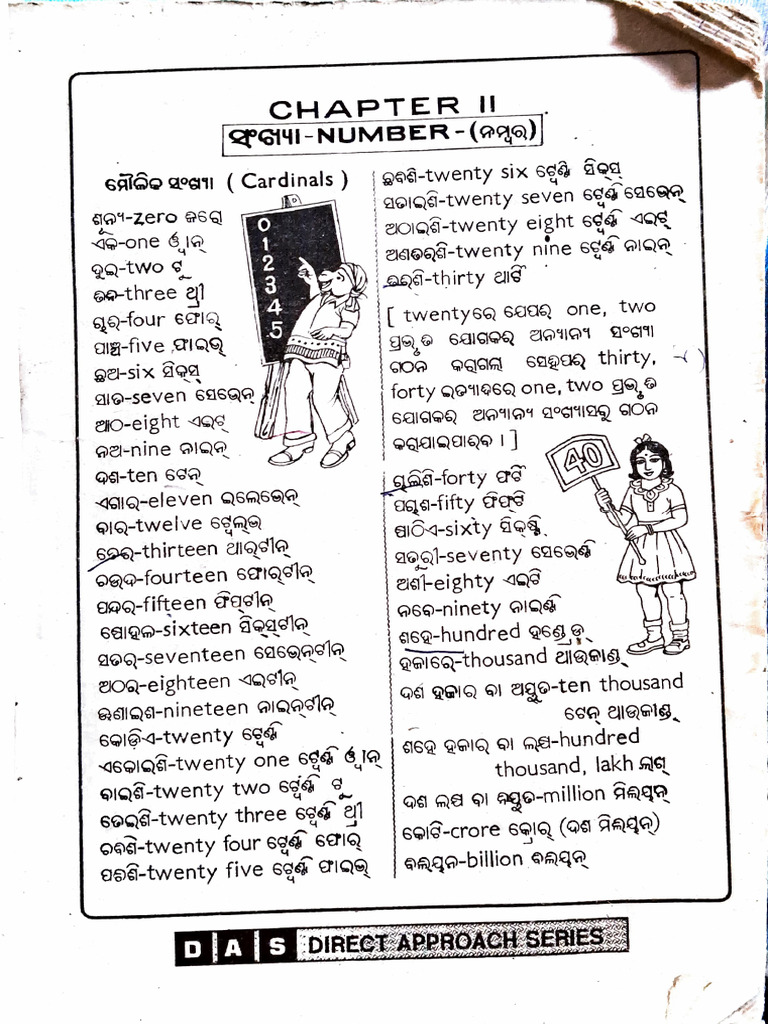 CHAPTER II
ସଂଖ୍ୟା-NUMBER-(ନମ୍ବର)
ମୌଳିକ ସଂଖ୍ୟା ( Cardinals )
ଶୂନ୍ୟ-zero ଜରୋ
ଏକ-one ଓ୍ୱାନ୍
ଦୁଇ-two ଟୁ
ତିନି-three ଥ୍ରୀ
ଚାରି-four ଫୋର୍
ପାଞ୍ଚ-five ଫାଇଭ୍
ଛଅ-six ସିକ୍ସ୍
ସାତ-seven ସେଭେନ୍
ଆଠ-eight ଏଇଟ୍
ନଅ-nine ନାଇନ୍
ଦଶ-ten ଟେନ୍
ଏଗାର-eleven ଇଲେଭେନ୍
ବାର-twelve ଟ୍ୱେଲ୍ଭ
ତେର-thirteen ଥାର୍ଟୀନ୍
ଚଉଦ-fourteen ଫୋର୍ଟୀନ୍
ପନ୍ଦର-fifteen ଫିପ୍ଟୀନ୍
ଷୋହଳ-sixteen ସିକ୍ସ୍ଟୀନ୍
ସତର-seventeen ସେଭେନ୍ଟୀନ୍
ଅଠର-eighteen ଏଇଟୀନ୍
ଊଣାଇଶ-nineteen ନାଇନ୍ଟୀନ୍
କୋଡ଼ିଏ-twenty ଟ୍ୱେଣ୍ଟି
ଏକୋଇଶି-twenty one ଟ୍ୱେଣ୍ଟି ଓ୍ୱାନ୍
ବାଇଶି-twenty two ଟ୍ୱେଣ୍ଟି ଟୁ
ତେଇଶି-twenty three ଟ୍ୱେଣ୍ଟି ଥ୍ରୀ
ଚବିଶି-twenty four ଟ୍ୱେଣ୍ଟି ଫୋର୍
ପଚିଶି-twenty five ଟ୍ୱେଣ୍ଟି ଫାଇଭ୍
0
1
2
3
4
5
ଛବିଶି-twenty six ଟ୍ୱେଣ୍ଟି ସିକ୍ସ୍
ସତାଇଶି-twenty seven ଟ୍ୱେଣ୍ଟି ସେଭେନ୍
ଅଠାଇଶି-twenty eight ଟ୍ୱେଣ୍ଟି ଏଇଟ୍
ଅଣତିରିଶି-twenty nine ଟ୍ୱେଣ୍ଟି ନାଇନ୍
ତିରିଶି-thirty ଥାର୍ଟି
[ twentyରେ ଯେପରି one, two
ପ୍ରଭୃତି ଯୋଗକରି ଅନ୍ୟାନ୍ୟ ସଂଖ୍ୟା
ଗଠନ କରାଗଲା ସେହିପରି thirty,
forty ଇତ୍ୟାଦିରେ one, two ପ୍ରଭୃତି
ଯୋଗକରି ଅନ୍ୟାନ୍ୟ ସଂଖ୍ୟାସବୁ ଗଠନ
କରାଯାଇପାରିବ । ]
ଚାଲିଶି-forty ଫର୍ଟି
ପଚାଶ-fifty ଫିଫ୍ଟି
ଷାଠିଏ-sixty ସିକ୍ଷ୍ଟି
ସତୁରୀ-seventy ସେଭେଣ୍ଟି
ଅଶୀ-eighty ଏଇଟି
ନବେ-ninety ନାଇଣ୍ଟି
ଶହେ-hundred ହଣ୍ଡ୍ରେଡ୍
ହଜାରେ-thousand ଥାଉଜାଣ୍ଡ୍
ଦଶ ହଜାର ବା ଅଯୁତ-ten thousand
ଟେନ୍ ଥାଉଜାଣ୍ଡ୍
ଶହେ ହଜାର ବା ଲକ୍ଷ-hundred
thousand, lakh ଲାଖ୍
ଦଶ ଲକ୍ଷ ବା ନିୟୁତ-million ମିଲିୟନ୍
କୋଟି-crore କ୍ରୋର୍ (ଦଶ ମିଲିୟନ୍)
ବିଲିୟନ-billion ବିଲିୟନ୍
40
DAS DIRECT APPROACH SERIES